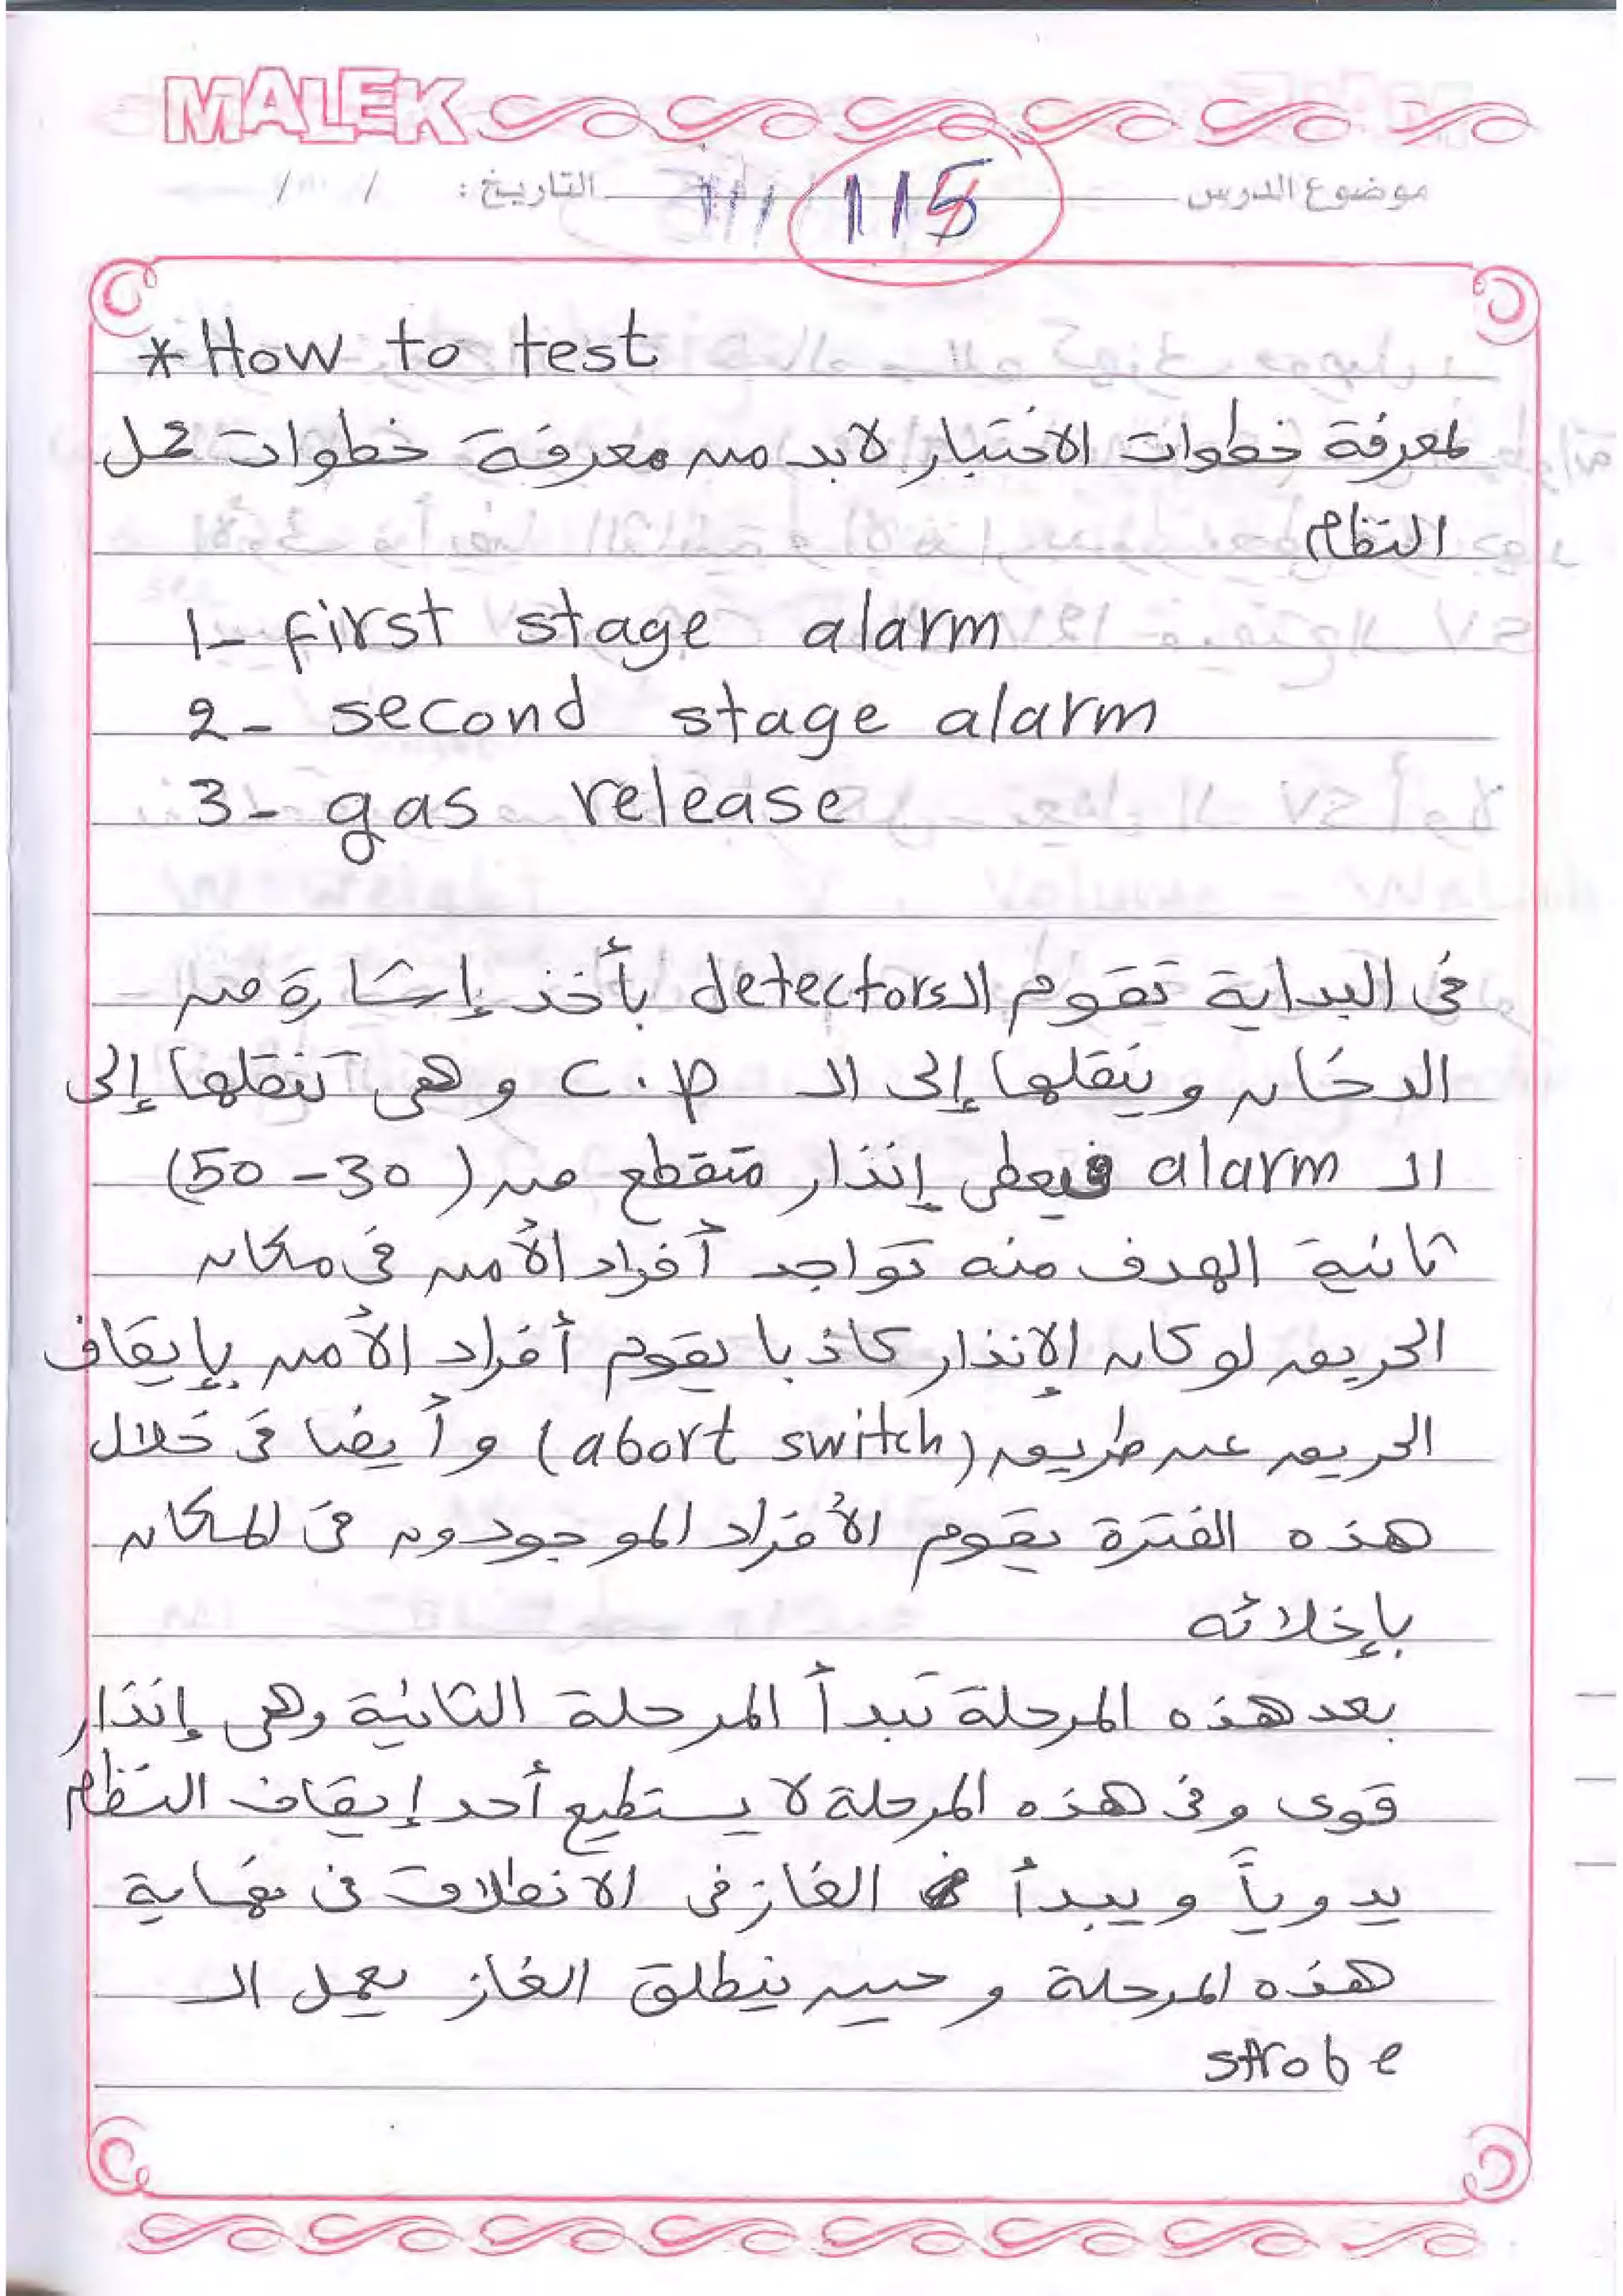 MALEK
موضوع الدرس 115 التاريخ: / /
* How to test
لمعرفة خطوات الاختبار لابد من معرفة خطوات عمل
النظام
1- first stage alarm
2- second stage alarm
3- gas release
فى البداية تقوم الـ detectors بأخذ إشارة من
الدخان وينقلها إلى الـ C.P وهى تنقلها إلى
الـ alarm فيعطى إنذار متقطع من (30 - 50)
ثانية الهدف منه تواجد أفراد الأمن فى مكان
الحريق لو كان الإنذار كاذبا يقوم أفراد الأمن بإيقاف
الحريق عن طريق (abort switch) وأيضا فى خلال
هذه الفترة يقوم الأفراد الموجودون فى المكان
بإخلائه
بعد هذه المرحلة تبدأ المرحلة الثانية وهى إنذار
قوى وفى هذه المرحلة لا يستطيع أحد إيقاف النظام
يدوياً ويبدأ الغاز فى الانطلاق فى نهاية
هذه المرحلة وحين ينطلق الغاز يعمل الـ
strobe